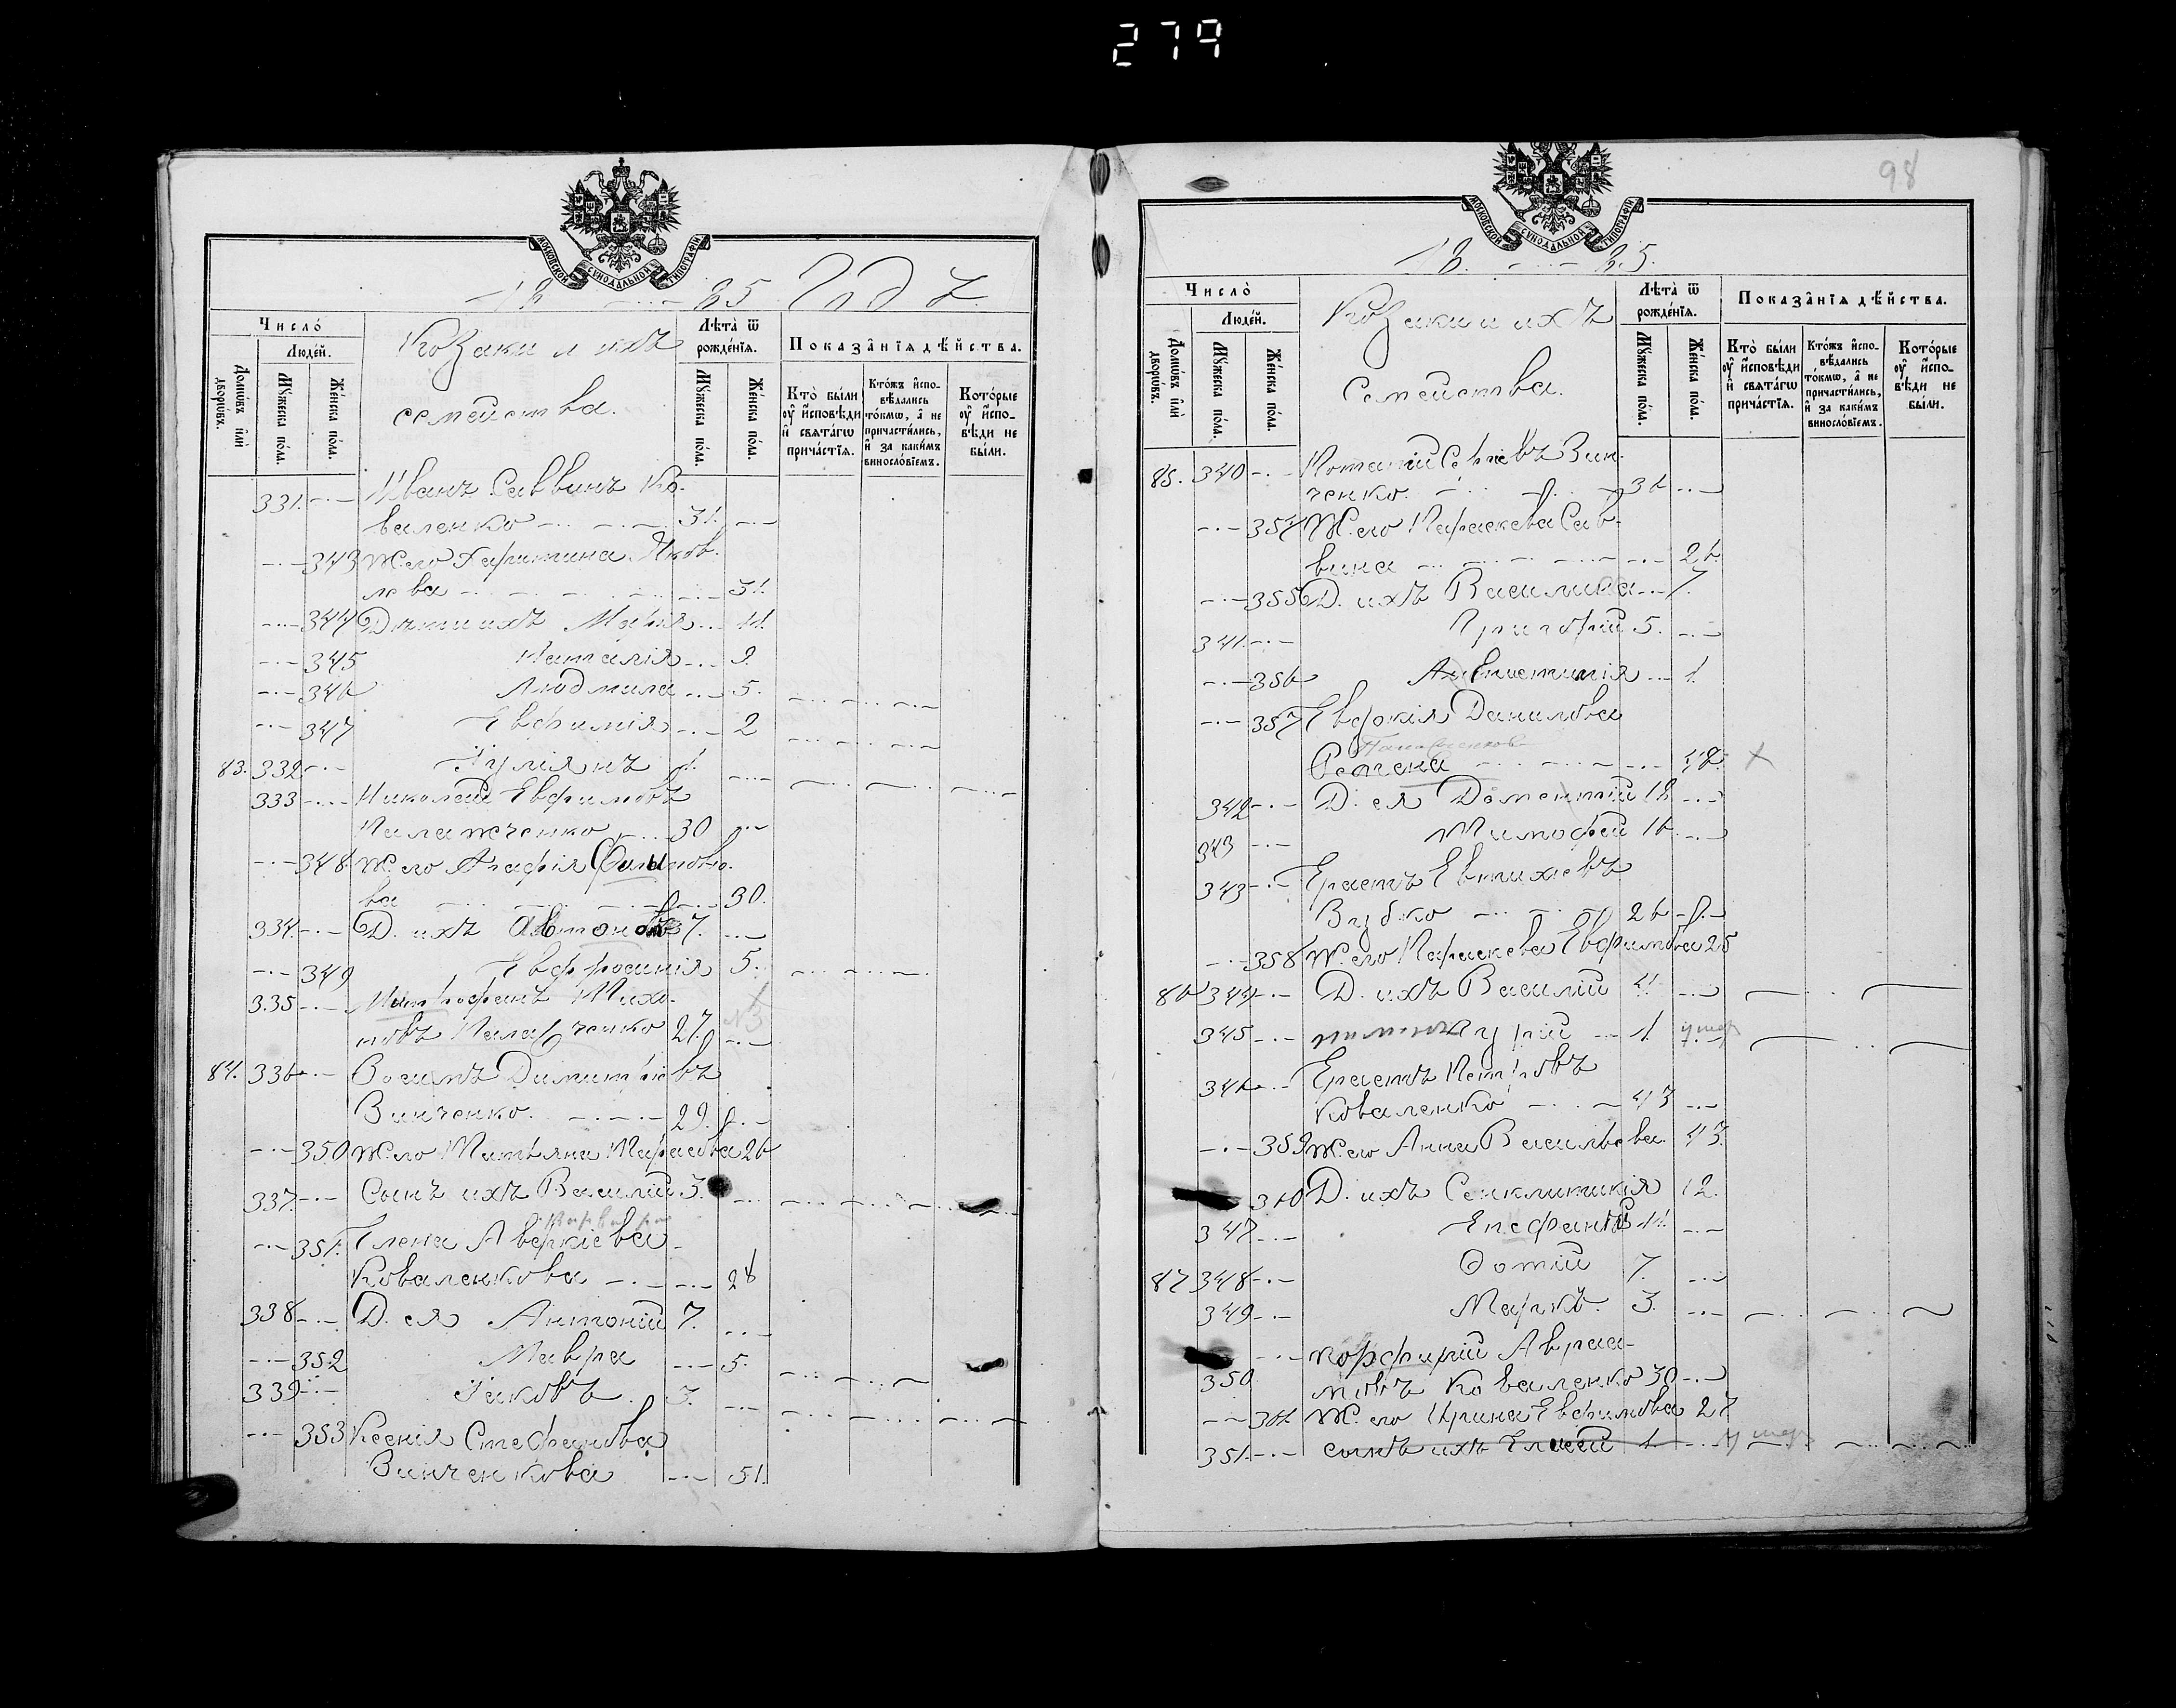 279
МОСКОВСКОЙ СѴНОДАЛЬНОЙ ТИПОГРАФІИ
18 — 85 Годъ
Число̀
Люде́й.
Домѡ́въ и҆лѝ дворѡ́въ.
Мꙋ́жеска по́ла.
Же́нска по́ла.
Козаки и ихъ
семейства.
Лѣта̀ ѿ рожде́нїѧ.
Мꙋ́жеска по́ла.
Же́нска по́ла.
Показа̂нїѧ дѣ́йства.
Кто̀ бы́ли оу҆ и҆сповѣ́ди и҆ свѧта́гѡ прича́стїѧ.
Кто́жъ и҆спо- вѣ́дались то́кмѡ, а҆ не причасти́лись, и҆ за каки́мъ виносло́вїемъ.
Кото́рые оу҆ и҆спо- вѣ́ди не бы́ли.
331. Иванъ Саввинъ Ко-
валенко 31.
343 Ж. его Харитина Яков-
лева 31.
344 Дѣти ихъ Марія 11.
345 Наталія 9.
346 Людмила 5.
347 Евфимія 2
83. 332 Іуліянъ 1.
333 Николай Евфимовъ
Паламъченко 30
348 Ж. его Агафія
ва 30.
334. Д. ихъ 7.
349 Евфросинія 5.
335 Митрофанъ Тихо-
новъ 27.
84. 336 Осипъ Димитріевъ
Винченко. 29.
350 Ж. его Татьяна Тарасова 26
337. Сынъ ихъ Василій 3.
351. Елена Аверкіева
Коваленкова 28
338 Д. ея Антоній 7.
352 Мавра 5.
339 Іаковъ. 3.
353 Ксенія Стефанова
Винченкова 51.
98
МОСКОВСКОЙ СѴНОДАЛЬНОЙ ТИПОГРАФІИ
18. — 85.
Число̀
Люде́й.
Домѡ́въ и҆лѝ дворѡ́въ.
Мꙋ́жеска по́ла.
Же́нска по́ла.
Козаки и ихъ
Семейства.
Лѣта̀ ѿ рожде́нїѧ.
Мꙋ́жеска по́ла.
Же́нска по́ла.
Показа̂нїѧ дѣ́йства.
Кто̀ бы́ли оу҆ и҆сповѣ́ди и҆ свѧта́гѡ прича́стїѧ.
Кто́жъ и҆спо- вѣ́дались то́кмѡ, а҆ не причасти́лись, и҆ за каки́мъ виносло́вїемъ.
Кото́рые оу҆ и҆спо- вѣ́ди не бы́ли.
85. 340 Потапій Сергіевъ Вин-
ченко. 36
354 Ж. его Параскева Сав-
вина 26.
355 Д. ихъ Василиса 7.
341. Григорій 5.
356 1.
357 Евдокія Данилова
48. х
342 Д. ея Доментій 18
343 Тимофей 16.
343 Ерастъ Евтихіевъ
26
358 Ж. его Параскева Евфимова 25
86 344 Д. ихъ Василій 4.
345 Гурій 1. умер
346 Ерастъ Петровъ
Коваленко 43
359 Ж. его Анна Васильева. 43.
360 Д. ихъ Сенклитикія 12.
347 Епефаній 11.
87 348 Фотій 7.
349 Маркъ. 3.
350 Порфирій Авраа-
мовъ Коваленко 30
361 Ж. его Ирина Евфимова 27
351. сынъ ихъ Елисей 1 умер